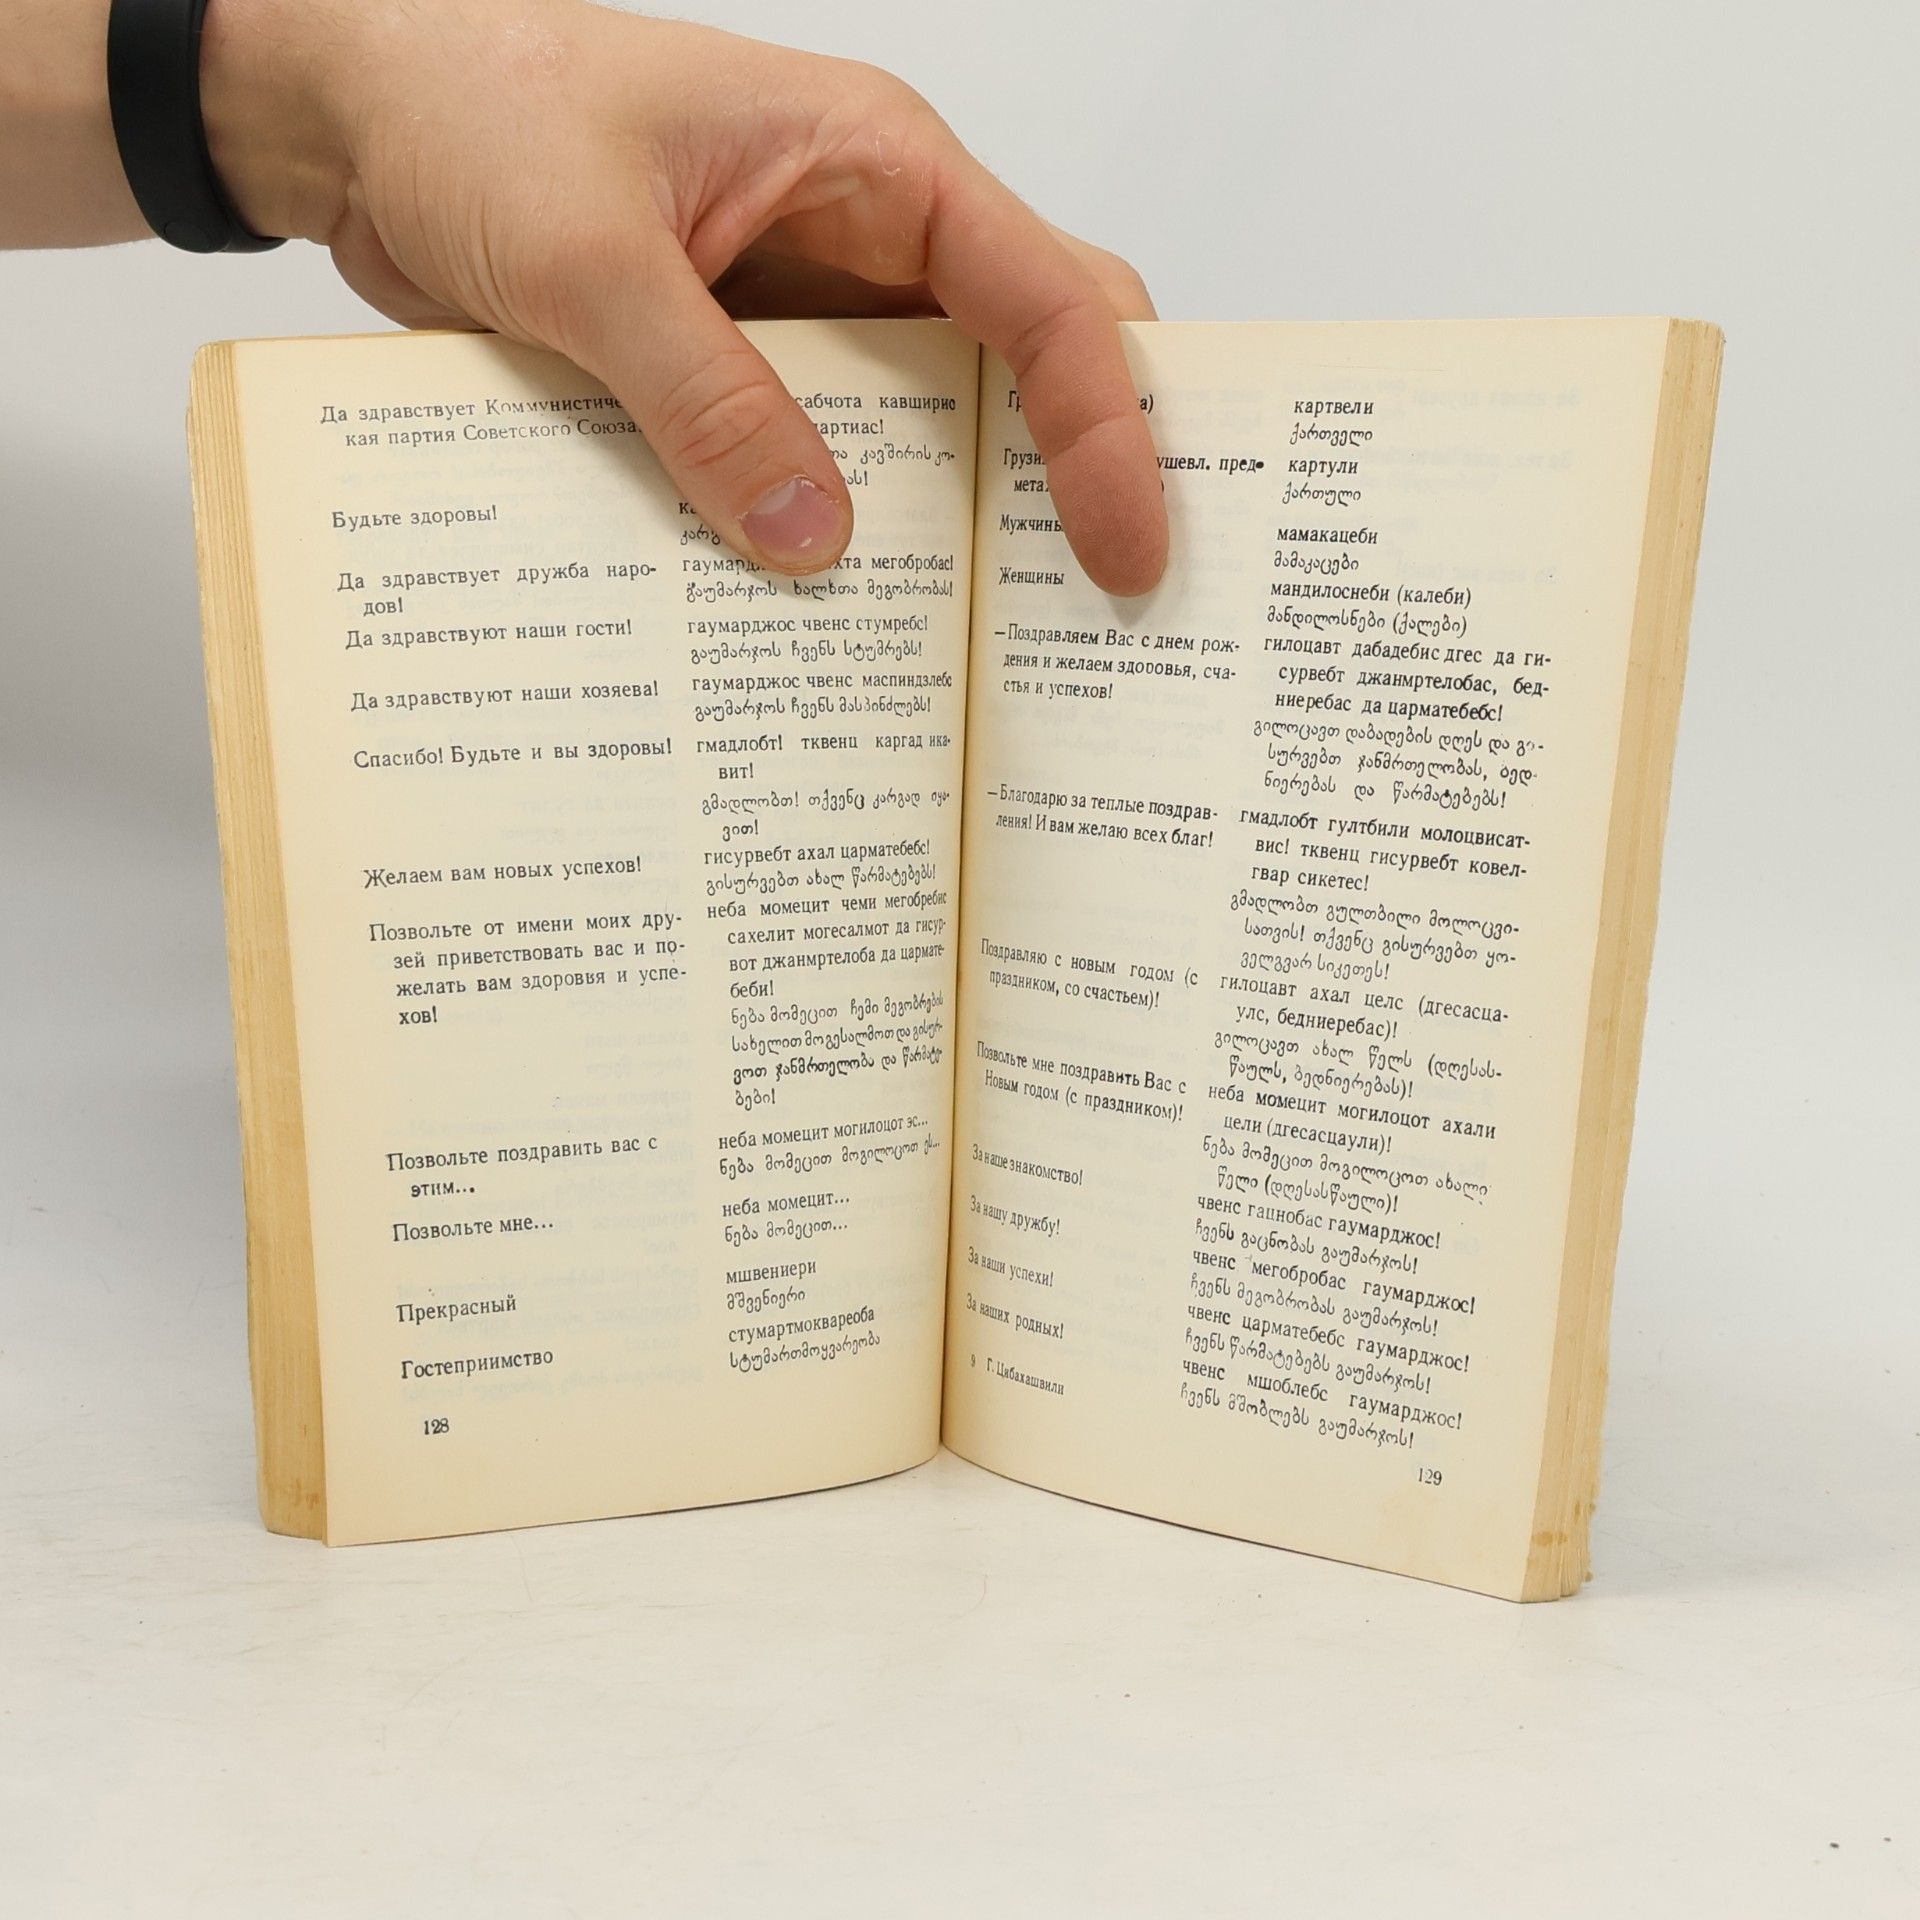 Да здравствует Коммунистичес-
кая партия Советского Союза!
сабчота кавширис
партиас!
კავშირის კო-
Будьте здоровы!
Да здравствует дружба наро-
дов!
მეგობრობას!
гаумарджос халхта мегобробас!
გაუმარჯოს ხალხთა მეგობრობას!
Да здравствуют наши гости!
гаумарджос чвенс стумребс!
გაუმარჯოს ჩვენს სტუმრებს!
Да здравствуют наши хозяева!
гаумарджос чвенс маспиндзлебс
გაუმარჯოს ჩვენს მასპინძლებს!
Спасибо! Будьте и вы здоровы!
гмадлобт! тквенц каргад ика-
вит!
გმადლობთ! თქვენც კარგად იყა-
ვით!
Желаем вам новых успехов!
гисурвебт ахал царматебебс!
გისურვებთ ახალ წარმატებებს!
Позвольте от имени моих дру-
зей приветствовать вас и по-
желать вам здоровья и успе-
хов!
неба момецит чеми мегобребис
сахелит могесалмот да гисур-
вот джанмртелоба да цармате-
беби!
ნება მომეცით ჩემი მეგობრების
სახელით მოგესალმოთ და გისურ-
ვოთ ჯანმრთელობა და წარმატე-
ბები!
Позвольте поздравить вас с
этим...
неба момецит могилоцот эс...
ნება მომეცით მოგილოცოთ ეს...
Позвольте мне...
неба момецит...
ნება მომეცით...
Прекрасный
мшвениери
მშვენიერი
Гостеприимство
стумартмоквареоба
სტუმართმოყვარეობა
128
картвели
ქართველი
ушевл. пред-
картули
ქართული
Мужчины
мамакацеби
მამაკაცები
Женщины
мандилоснеби (калеби)
მანდილოსნები (ქალები)
—Поздравляем Вас с днем рож-
дения и желаем здоровья, сча-
стья и успехов!
гилоцавт дабадебис дгес да ги-
сурвебт джанмртелобас, бед-
ниеребас да царматебебс!
გილოცავთ დაბადების დღეს და გი-
სურვებთ ჯანმრთელობას, ბედ-
ნიერებას და წარმატებებს!
—Благодарю за теплые поздрав-
ления! И вам желаю всех благ!
гмадлобт гултбили молоцвисат-
вис! тквенц гисурвебт ковел-
гвар сикетес!
გმადლობთ გულთბილი მოლოცვი-
სათვის! თქვენც გისურვებთ ყო-
ველგვარ სიკეთეს!
Поздравляю с новым годом (с
праздником, со счастьем)!
гилоцавт ахал целс (дгесасца-
улс, бедниеребас)!
გილოცავთ ახალ წელს (დღესას-
წაულს, ბედნიერებას)!
Позвольте мне поздравить Вас с
Новым годом (с праздником)!
неба момецит могилоцот ахали
цели (дгесасцаули)!
ნება მომეცით მოგილოცოთ ახალი
წელი (დღესასწაული)!
За наше знакомство!
чвенс гацнобас гаумарджос!
ჩვენს გაცნობას გაუმარჯოს!
За нашу дружбу!
чвенс мегобробас гаумарджос!
ჩვენს მეგობრობას გაუმარჯოს!
За наши успехи!
чвенс царматебебс гаумарджос!
ჩვენს წარმატებებს გაუმარჯოს!
За наших родных!
чвенс мшоблебс гаумарджос!
ჩვენს მშობლებს გაუმარჯოს!
9 Г. Цибахашвили
129